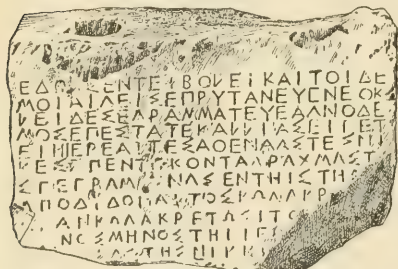 ΕΔΟΧΣΕΝΤΕΙΒΟΛΕΙΚΑΙΤΟΙΔΕ
ΜΟΙΑΙΓΕΙΣΕΠΡΥΤΑΝΕΥΕΝΕΟΚ
ΛΕΙΔΕΣΕΓΡΑΜΜΑΤΕΥΕΑΓΝΟΔΕ
ΜΟΣΕΠΕΣΤΑΤΕΚΑΛΛΙΑΣΕΙΠΕΤ
ΕΙΗΙΕΡΕΑΙΤΕΣΑΘΕΝΑΑΣΤΕΣΝΙ
ΚΕΣΠΕΝΤΕΚΟΝΤΑΔΡΑΧΜΑΣΤ
ΣΓΕΓΡΑΜΜΕΝΑΣΕΝΤΗΙΣΤΗ
ΑΠΟΔΙΔΟΝΑΙΤΟΣΚΩΛΑΚΡ
ΑΝΚΩΛΑΚΡΕΤΩΣΙΤΟ
ΝΟΣΜΗΝΟΣΤΗΙΙΕΡ
ΑΣΤΗΣΝΙΚΗΣ